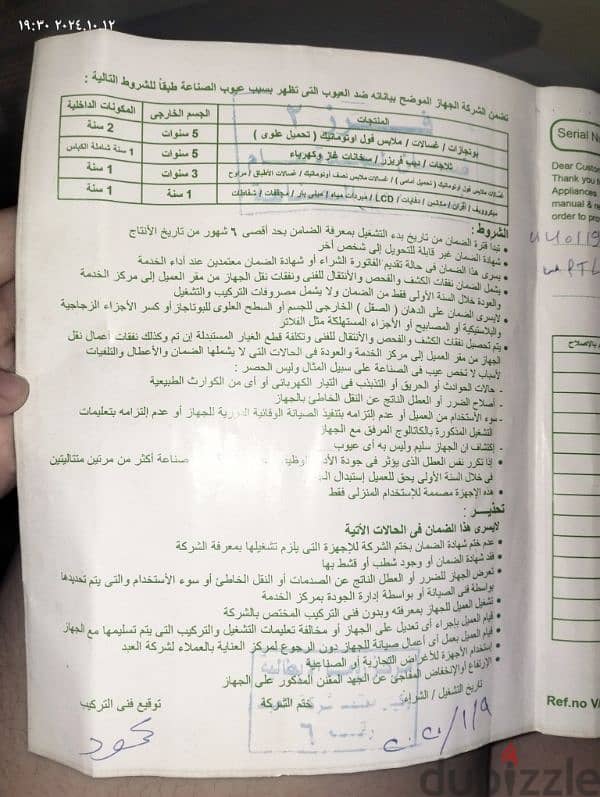 ٢٠٢٤.١٠.١٢ ١٩:٣٠
تضمن الشركة الجهاز الموضح بياناته ضد العيوب التى تظهر بسبب عيوب الصناعة طبقاً للشروط التالية :
المنتجات الجسم الخارجى المكونات الداخلية
بوتجازات / غسالات / ملابس فول اوتوماتيك ( تحميل علوى ) 5 سنوات 2 سنة
ثلاجات / ديب فريزر / سخانات غاز وكهرباء 5 سنوات 1 سنة شاملة الكباس
غسالات ملابس فول أوتوماتيك ( تحميل أمامى ) / غسالات ملابس نصف أوتوماتيك / غسالات الأطباق / مراوح 3 سنوات 1 سنة
ميكروويف / أفران / مكانس / دفايات / LCD / مبردات مياه / مينى بار / مجففات / شفاطات 1 سنة 1 سنة
الشروط :
• تبدا فترة الضمان من تاريخ بدء التشغيل بمعرفة الضامن بحد أقصى ٦ شهور من تاريخ الأنتاج
• شهادة الضمان غير قابلة للتحويل إلى شخص أخر
• يسرى هذا الضمان فى حالة تقديم الفاتورة الشراء أو شهادة الضمان معتمدين عند أداء الخدمة
• يشمل الضمان نفقات الكشف والفحص والأنتقال للفنى ونفقات نقل الجهاز من مقر العميل إلى مركز الخدمة
والعودة خلال السنة الأولى فقط من الضمان ولا يشمل مصروفات التركيب والتشغيل
• لايسرى الضمان على الدهان ( الصقل ) الخارجى للجسم أو السطح العلوى للبوتاجاز أو كسر الأجزاء الزجاجية
والبلاستيكية أو المصابيح أو الأجزاء المستهلكة مثل الفلاتر
• يتم تحصيل نفقات الكشف والفحص والأنتقال للفنى وتكلفة قطع الغيار المستبدلة إن تم وكذلك نفقات أعمال نقل
الجهاز من مقر العميل إلى مركز الخدمة والعودة فى الحالات التى لا يشملها الضمان والأعطال والتلفيات
لأسباب لا تخص عيب فى الصناعة على سبيل المثال وليس الحصر :
- حالات الحوادث أو الحريق أو التذبذب فى التيار الكهربائى أو أى من الكوارث الطبيعية
- أصلاح الضرر أو العطل الناتج عن النقل الخاطئ بالجهاز
- سوء الأستخدام من العميل أو عدم إلتزامه بتنفيذ الصيانة الوقائية الدورية للجهاز أو عدم إلتزامه بتعليمات
التشغيل المذكورة بالكاتالوج المرفق مع الجهاز
- إكتشاف ان الجهاز سليم وليس به أى عيوب
• إذا تكرر نفس العطل الذى يؤثر فى جودة الأداء صناعة أكثر من مرتين متتاليتين
فى خلال السنة الأولى يحق للعميل إستبدال
• هذه الإجهزة مصممة للإستخدام المنزلى فقط
تحذير :
لايسرى هذا الضمان فى الحالات الأتية
• عدم ختم شهادة الضمان بختم الشركة للإجهزة التى يلزم تشغيلها بمعرفة الشركة
• فقد شهادة الضمان أو وجود شطب أو قشط بها
• تعرض الجهاز للضرر أو العطل الناتج عن الصدمات أو النقل الخاطئ أو سوء الأستخدام والتى يتم تحديدها
بواسطة فنى الصيانة أو بواسطة إدارة الجودة بمركز الخدمة
• تشغيل العميل للجهاز بمعرفته وبدون فنى التركيب المختص بالشركة
• قيام العميل بإجراء أى تعديل على الجهاز أو مخالفة تعليمات التشغيل والتركيب التى يتم تسليمها مع الجهاز
• قيام العميل بعمل أى أعمال صيانة للجهاز دون الرجوع لمركز العناية بالعملاء لشركة العبد
• إستخدام الأجهزة للأغراض التجارية أو الصناعية
• الإرتفاع أوالإنخفاض المفاجئ عن الجهد المقنن المذكور على الجهاز
تاريخ التشغيل / الشراء ختم الشركة توقيع فنى التركيب
محمود
Serial No
Dear Custo
Thank you f
Appliances
manual &
order to pro
Ref.no
dubizzle